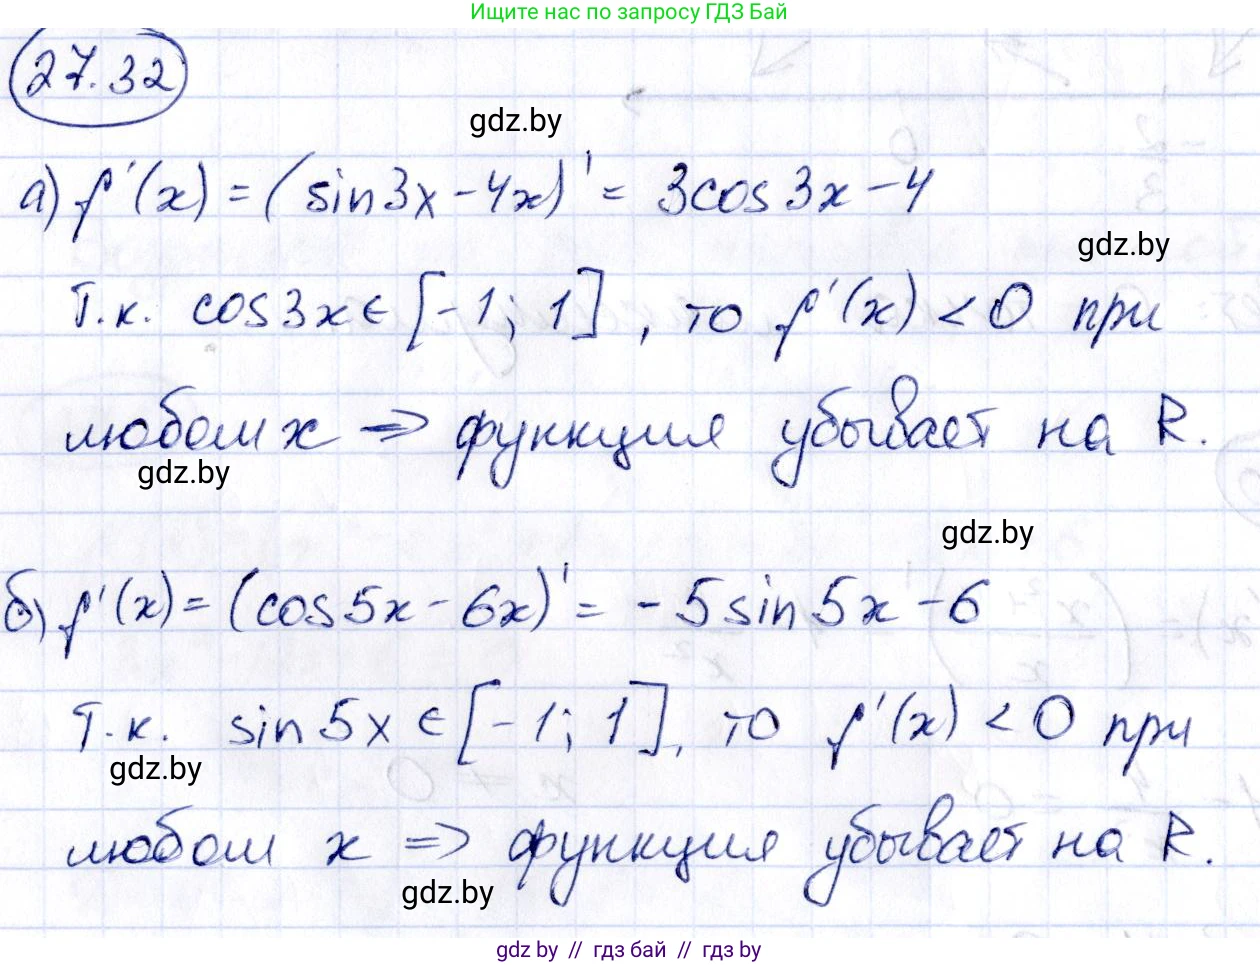 Ищите нас по запросу ГДЗ Бай
27.32
gdz.by
а) f'(x) = (sin3x - 4x)' = 3cos3x - 4
gdz.by
Т.к. cos3x ∈ [-1; 1], то f'(x) < 0 при
любом x => функция убывает на R.
gdz.by
gdz.by
б) f'(x) = (cos5x - 6x)' = -5sin5x - 6
Т.к. sin5x ∈ [-1; 1], то f'(x) < 0 при
gdz.by
любом x => функция убывает на R.
gdz.by
gdz by // гдз бай // гдз by